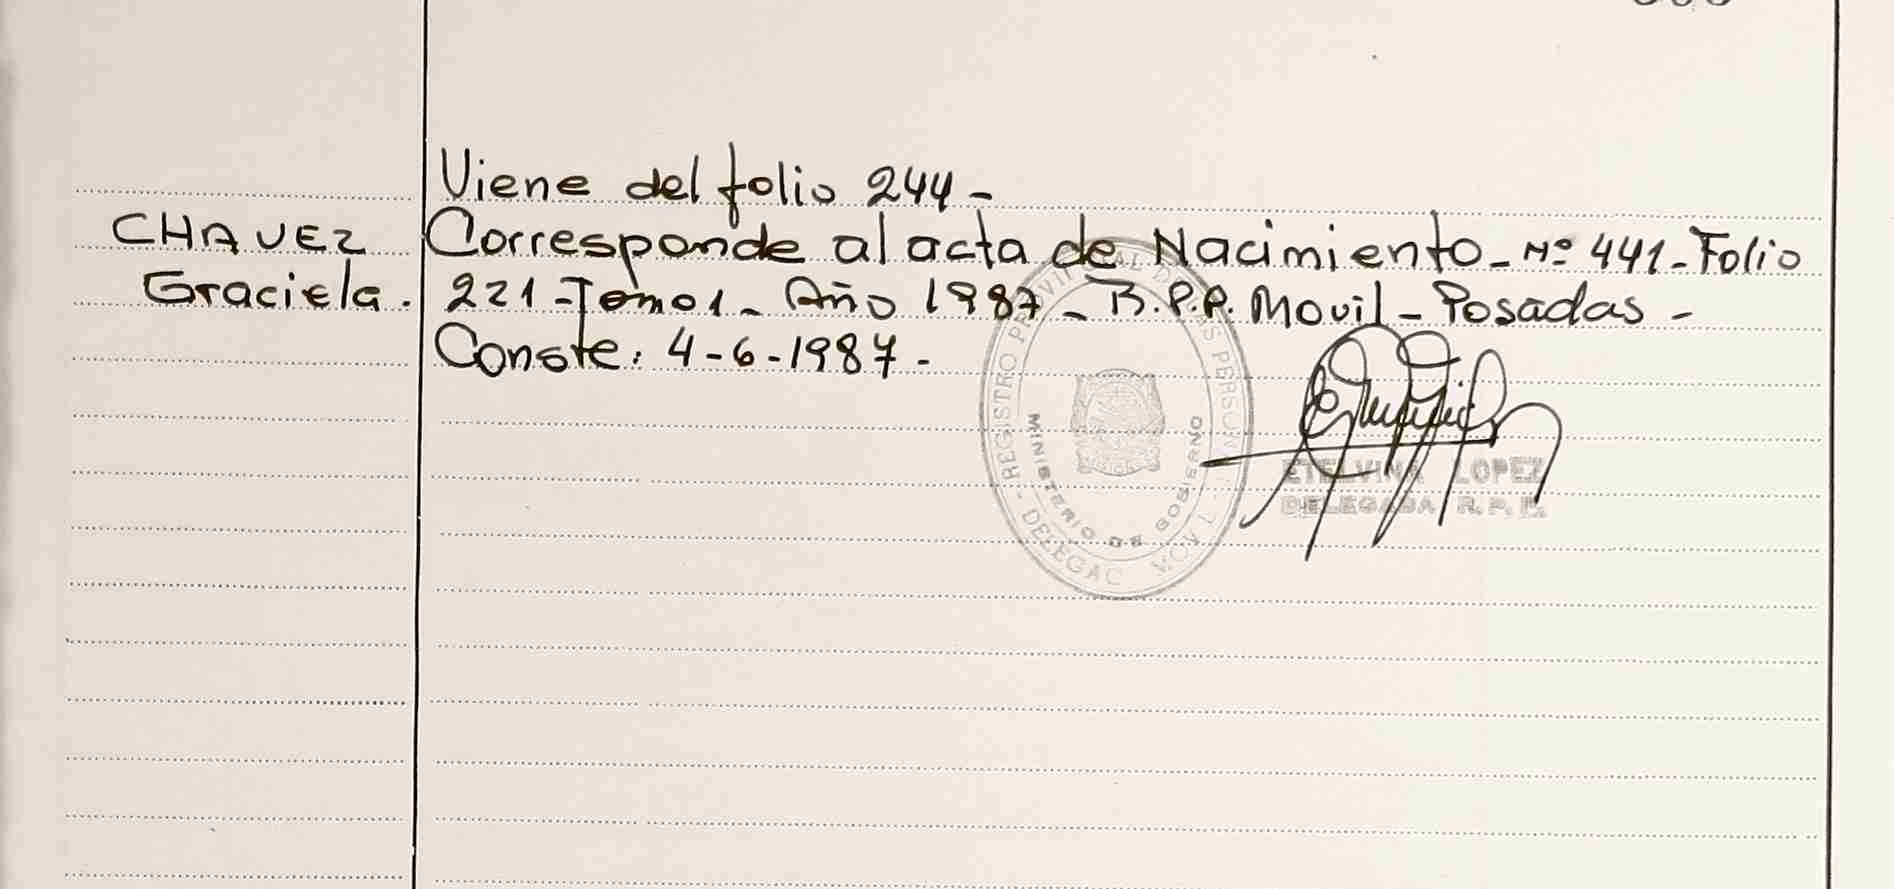 Viene del folio 244-
CHAVEZ
Graciela.
Corresponde al acta de Nacimiento-Nº 441-Folio
221-Tomo1- Año 1987- R.P.P. Movil-Posadas-
Conste: 4-6-1987-
REGISTRO PROVINCIAL DE LAS PERSONAS
MINISTERIO DE GOBIERNO
DELEGAC MOVIL
ETELVINA LOPEZ
DELEGADA R.P.P.